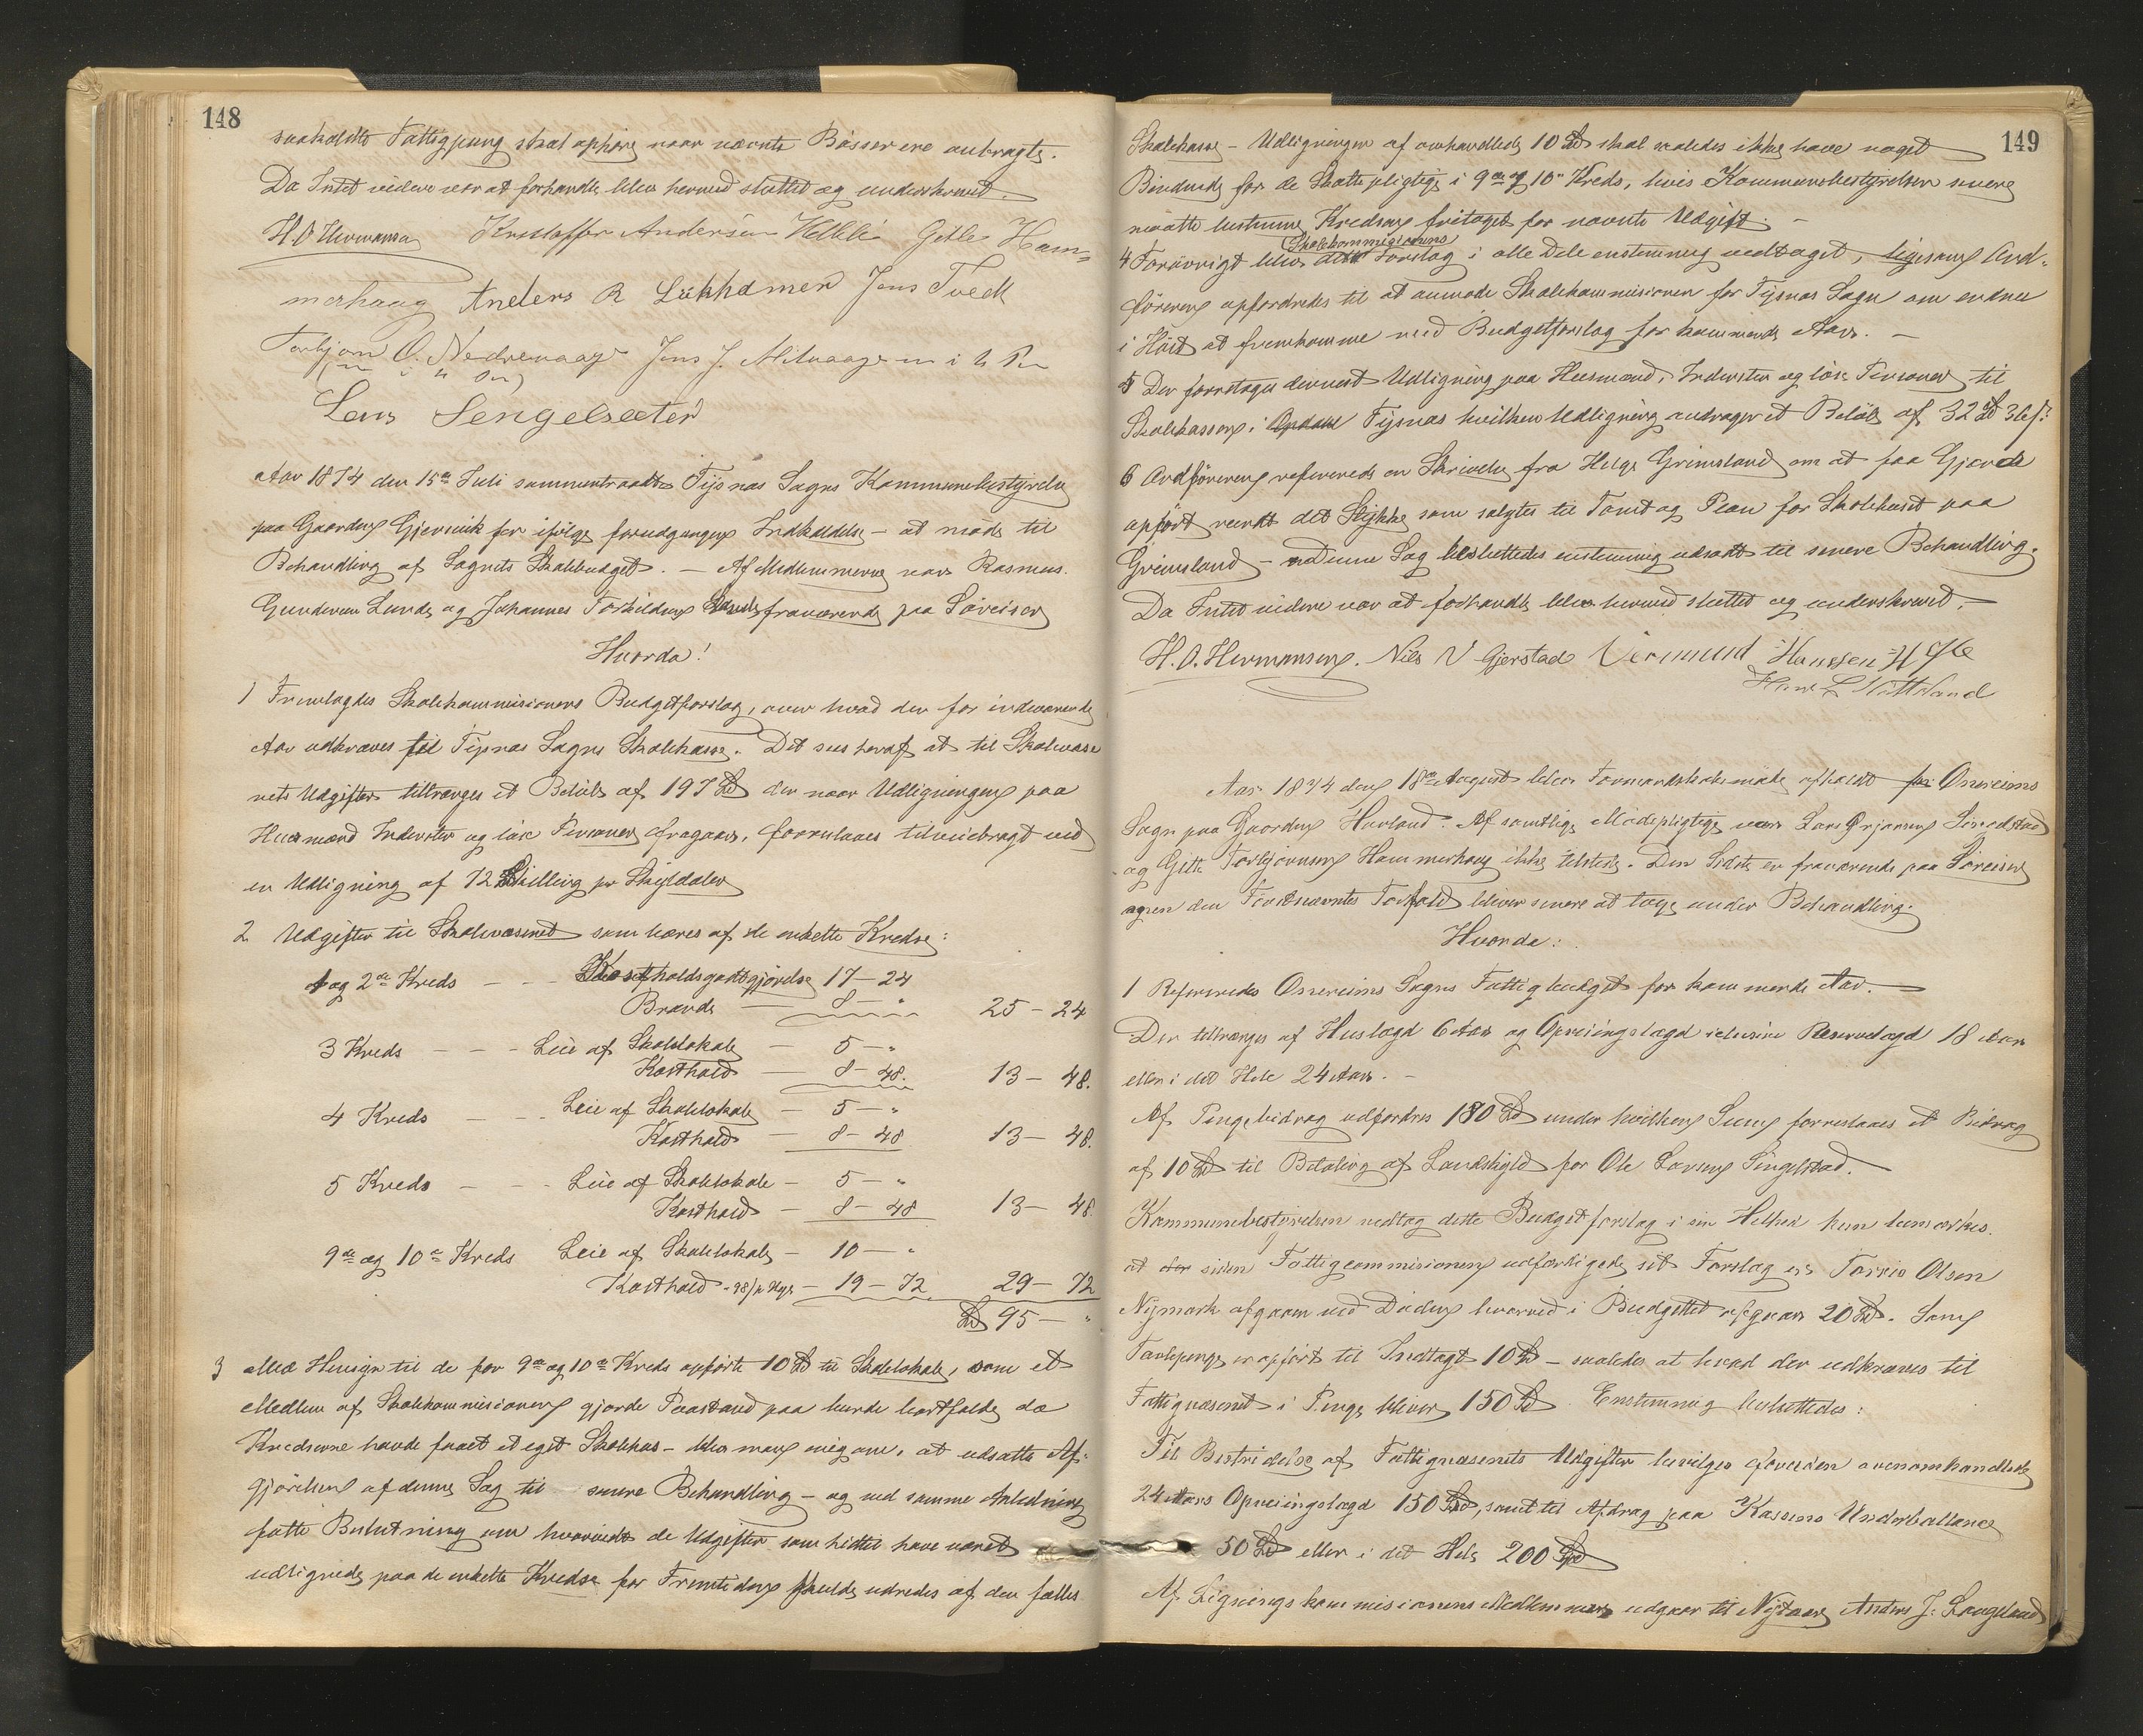 148
saakaldte Fattigpung skal ophøre naar nævnte Bøsser ere anbragte.
Da Intet videre var at forhandle blev hermed sluttet og underskrevet.
H. O Hermansen Kristoffer Andersen Gitle Ham=
merhaug Anders R Lükhamer Jens Tvedt
Torbjørn O. Nedrevaage Jens J. m i h P
Lars Sengelsæter
Aar 1874 den 15de Juli sammentraadte Tysnæs Sogns Kommunebestyrelse
paa Gaarden Gjersvik for ifølge forudgangen Indkaldelse – at møde til
Behandling af Sognets Skolebudget. – Af Medlemmerne var Rasmus
Gundersen Lunde og Johannes Torkildsen fraværende paa Søreiser
Hvorda!
1 Fremlagdes Skolekommisionens Budgetforslag, over hvad der for indeværende
Aar udkræves til Tysnæs Sogns Skolekasse. Det sees heraf at til Skolevæse
nets Udgifter tiltrænges et Beløb af 197 Spd der naar Udligningen paa
Huusmænd Inderster og løse Personer fragaar, formenes tilveiebragt ved
en Udligning af 72 Skilling pr Skylddaler
2 Udgifter til Skolevæsenet som bæres af de enkelte Kredse:
1 og 2de Kreds – – Kostholdsgodtgjørelse 17 – 24
Brænde 8 – " 25 – 24
3 Kreds – – – Leie af Skolelokale – 5 – "
Kosthold – 8 – 48. 13 – 48.
4 Kreds – – Leie af Skolelokale – 5 – "
Kosthold – 8 – 48 13 – 48.
5 Kreds – – Leie af Skolelokale – 5 – "
Kosthold – 8 – 48 13 – 48.
9de og 10de Kreds Leie af Skolelokale – 10 – "
Kosthold – 19 – 72 29 – 72
Spd 95 – "
3 Med Hensyn til de for 9de og 10de Kreds opførte 10 Spd til Skolelokale, som et
Medlem af Skolekommisionen gjorde Paastand paa burde bortfalde, da
Kredserne havde faaet et eget Skolehus – blev man enig om, at udsætte Af-
gjørelsen af denne Sag til senere Behandling – og ved samme Anledning
fatte Beslutning om hvorvidt de Udgifter som hidtil have været
udlignede paa de enkelte Kredse for Fremtiden skulde udredes af den fælles
149
Skolekasse – Udligningen af omhandlede 10 Spd skal saaledes ikke have noget
Bindende for de Skattepligtige i 9de og 10de Kreds, hvis Kommunebestyrelsen senere
maatte bestemme Kredsen fritaget for nævnte Udgift. –
Skolekommisionens
4 Forøvrigt blev Forslag i alle Dele enstemmig vedtaget, ligesom Ord-
føreren opfordredes til at anmode Skolekommisionen for Tysnæs Sogn om endnu
i Høst at fremkomme med Budgetforslag for kommende Aar. –
5 Der foretoges dernæst Udligning paa Huusmænd, Inderster og løse Personer til
Skolekassen i Tysnæs hvilken Udligning andrager et Beløb af 32 Spd 36 s.
6 Ordføreren refererede en Skrivelse fra Helge Grimsland om at faa Gjerde
opført rundt det Stykke som solgtes til Tomt og Plan for Skolehuset paa
Grimsland – Denne Sag besluttedes enstemmig udsatt til senere Behandling.
Da Intet videre var at forhandle blev hermed sluttet og underskrevet. –
H. O. Hermansen. Nils N Gjerstad Vermund Hanssen
Aar 1874 den 18de August blev Formandskabsmøde afholdt for Onereims
Sogn paa Gaarden Hovland. Af samtlige Mødepligtige var Lars Ørjansen
og Gitle Torbjørnsen Hammerhaug ikke tilstede. Den Sidste er fraværende paa Søreiser
og den Førstnævntes Forfald bliver senere at tage under Behandling.
Hvorda:
1 Refereredes Onereims Sogns Fattigbudget for kommende Aar. –
Der tiltrænges af Huslægd 6 Aar og Opreiingslægd inclusive Reservelægd 18 Aar
eller i det Hele 24 Aar. –
Af Pengebidrag udfordres 180 Spd under hvilken Sum foreslaaes et Bidrag
af 10 Spd til Betaling af Landskyld for Ole Larsen Singelstad. –
Kommunebestyrelsen vedtog dette Budgetforslag i sin Helhed kun bemærkes
at siden Fattigcommisionen udfærdigede sit Forslag er Olsen
Nymark afgaaen ved Døden hvorved i Budgettet afgaar 20 Spd. Som
Tavlepenge er opført til Indtægt 10 Spd – saaledes at hvad der udkræves til
Fattigvæsenet i Penge bliver 150 Spd. Enstemmig besluttedes:
Til Bestridelse af Fattigvæsenets Udgifter bevilges foruden ovenomhandlede
24 Aars Opreiingslægd 150 Spd, samt til Afdrag paa Kassens Underballance
50 Spd eller i det Hele 200 Spd
Af Ligningskommisionens Medlemmer udgaar til Nytaar Anders J. Langeland